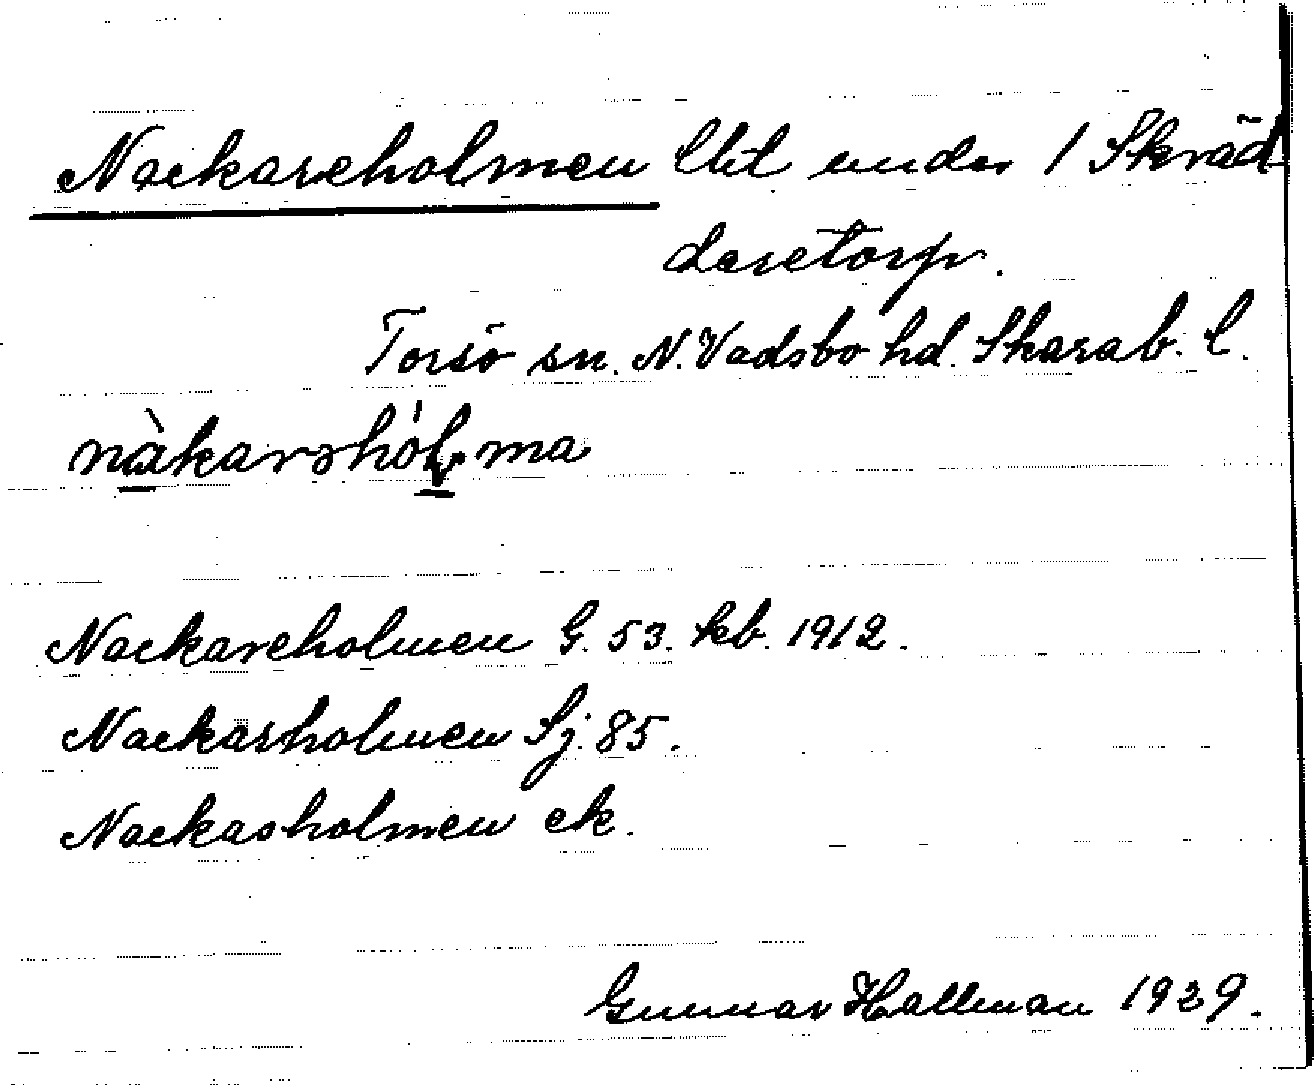 Nackareholmen Utt under 1 Skräd
daretorp.
Torsö sn. N. Vadsbo hd. Skarab. l.
nàkarəhól̥ma
Nackareholmen G. 53. kb. 1912.
Nackarholmen Sj. 85.
Nackasholmen ek.
Gunnar Hallman 1929.